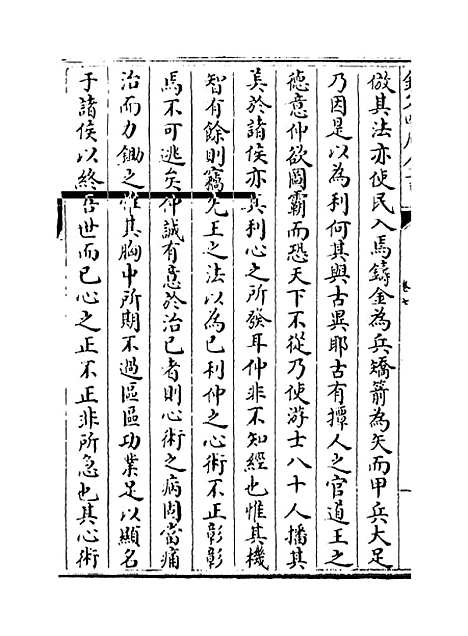 倣其法亦使民入焉鑄金為兵矯箭為矢而甲兵大足
乃因是以為利何其與古異耶古有撢人之官道王之
德意仲欲圖霸而恐天下不從乃使游士八十人播其
美於諸侯亦其利心之所發耳仲非不知經也惟其機
智有餘則竊先王之法以為已利仲之心術不正彰彰
焉不可逃矣仲誠有意於治已者則心術之病固當痛
治而力鋤之惟其胸中所期不過區區功業足以顯名
于諸侯以終吾世而已心之正不正非所急也其心術